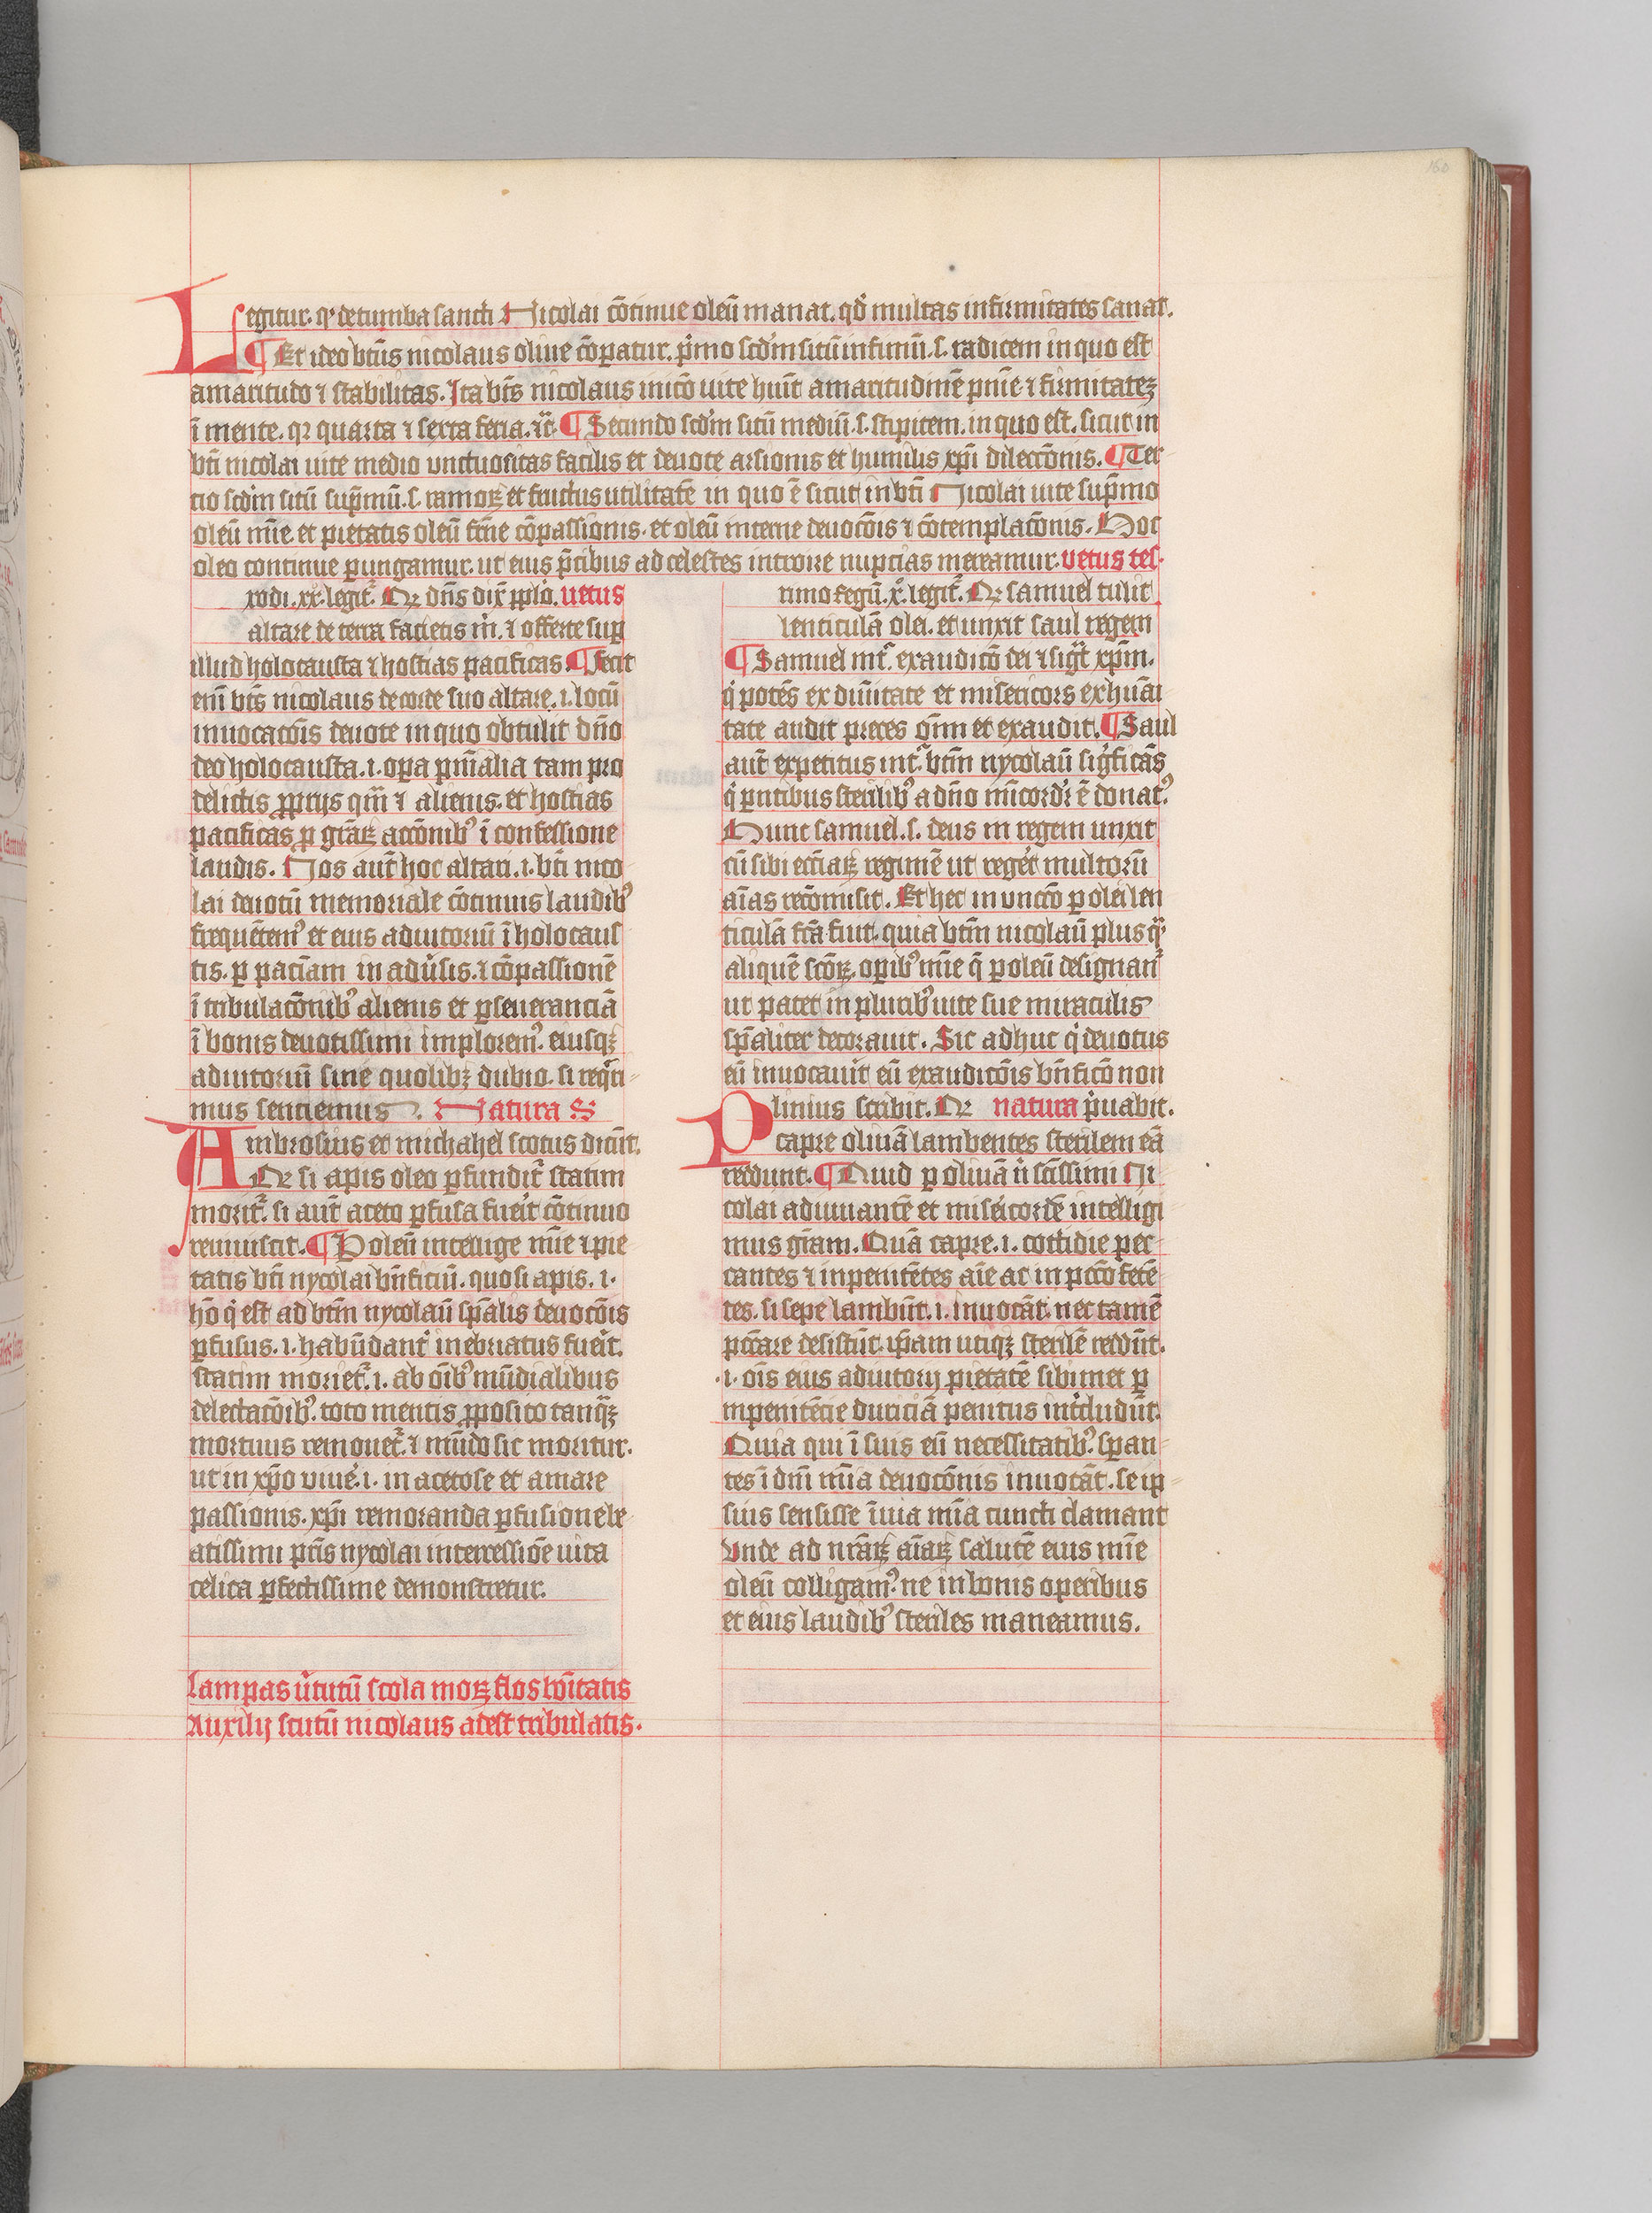 160
Legitur. q' de tumba sancti Nicolai cōtinue oleū manat. qd' multas infirmitates sanat.
¶ Et ideo btūs nicolaus oliue cōparatur. p̄mo scd'm sitū infimū. s. radicem in quo est
amaritudo ⁊ stabilitas. Ita bt̄s nicolaus inicō uite huit amaritudinē pn̄ie ⁊ firmitatez
ī mente. qr quarta ⁊ sexta feria. ⁊c̄. ¶ Secundo scd'm sitū mediū. s. stipitem. in quo est. sicut in
bt̄i nicolai uite medio vnctuositas facilis et deuote arsionis et humilis xp̄i dileccōnis. ¶ Ter
tio scd'm sitū sup̄mū. s. ramoꝝ et fructus utilitatē in quo ē sicut in bt̄i Nicolai uite sup̄mo
oleū mīe et pietatis oleū frn̄e cōpassionis. et oleū interne deuocōis ⁊ cōtemplacōnis. Hoc
oleo continue ꝑungamur. ut eius p̄cibus ad celestes introire nupcias mereamur. vetus tes.
xodi. xx. legit'. Qr dn̄s dix̄ ppl̄o. uetus
altare de terra facietis m̄. ⁊ offerte sup
illud holocausta ⁊ hostias pacificas ¶ fecit
enī bt̄s nicolaus de corde suo altare. i. locū
inuocacōis deuote in quo obtulit dn̄o
deo holocausta. i. oꝑa pn̄ialia tam pro
delictis ꝓprijs qm̄ ⁊ alienis. et hostias
pacificas ꝑ grāꝝ accōnibꝰ ī confessione
laudis. Nos aut̄ hoc altari. i. bt̄i nico
lai deuotū memoriale cōtinuis laudibꝰ
frequētemꝰ et eius adiutoriū ī holocaus
tis. ꝑ paciam in adūsis. ⁊ cōpassionē
ī tribulacōnibꝰ alienis et ꝑseueranciā
ī bonis deuotissimi imploremꝰ. eiusqꝫ
adiutoriū sine quolibꝫ dubio. si reqͥri
mus senciemus. Natura S
Ambrosius et michahel scotus dicūt.
Qr si apis oleo ꝑfundit' statim
morit'. si aut̄ aceto ꝑfusa fueit cōtinuo
reuiuiscit. ¶ P oleū intellige mīe ⁊ pie
tatis bt̄i nycolai bn̄ficiū. quo si apis. i.
hō qͥ est ad btm̄ nycolaū sp̄alis deuocōis
ꝑfusus. i. habūdant' inebriatus fueīt.
statim moriet'. i. ab oībꝰ mūdialibus
delectacōibꝰ. toto mentis ꝓposito tanqꝫ
mortuus remouet'. ⁊ mūdo sic moritur.
ut in xp̄o viue'. i. in acetose et amare
passionis. xp̄i remoranda ꝑfusione be
atissimi pr̄is nycolai intercessiōe uita
celica ꝑfectissime demonstretur.
Lampas v̄tutū scola moꝝ flos bōitatis
Auxilij scutū nicolaus adest tribulatis.
rimo Regū. x̊. legit'. Qr samuel tulit
lenticulā olei. et unxit saul regem
¶ Samuel int'. exaudicō dei ⁊ sigt̄ xp̄m.
qͥ potēs ex diuītate et misericors ex huāi
tate audit preces oīm et exaudit. ¶ Saul
aut̄ expetitus int'. btm̄ nycolaū sigͥficās
qͥ pn̄tibus sterilibꝰ a dn̄o mīcordr̄ ē donatꝰ.
Hunc samuel. s. deus in regem unxit
cū sibi ecc̄iaꝝ regimē ut reger̄t multorū
aīas recōmisit. Et hec in vnccō ꝑ olei len
ticulā fcā fuit. quia btm̄ nicolaū plus qͣ
aliquē scōꝝ. oꝑibꝰ mīe q̄ ꝑ oleū designant'
ut patet in pluribꝰ uite sue miraculis
sp̄aliter decorauit. Sic adhuc qͥ deuotus
eū inuocauit eū exaudicōis bn̄ficō non
Plinius scribit. Qr natura p̄uabit.
capre oliuā lambentes sterilem eā
reddunt. ¶ Quid ꝑ oliuā n̄ scīssimi Ni
colai adiuuantē et miseicordē intelligi
mus grām. Quā capre. i. cottidie pec
cantes ⁊ inpenitētes aīe ac in pccō fetē
tes. si sepe lambūt. i. inuocāt. nec tamē
pccāre desistūt. ip̄am utiqꝫ sterilē reddūt.
.i. oīs eius adiutorij pietatē sibimet ꝑ
inpenitēcie duriciā penitus intͤcludūt.
Quia qui ī suis eū necessitatibꝰ. speran
tes ī dnī mīa deuocōnis inuocāt. se ip
sius sensisse iuuia mīa cuncti clamant
Vnde ad nrāꝝ aīaꝝ salutē eius mīe
oleū colligamꝰ. ne in bonis operibus
et eius laudibꝰ steriles maneamus.